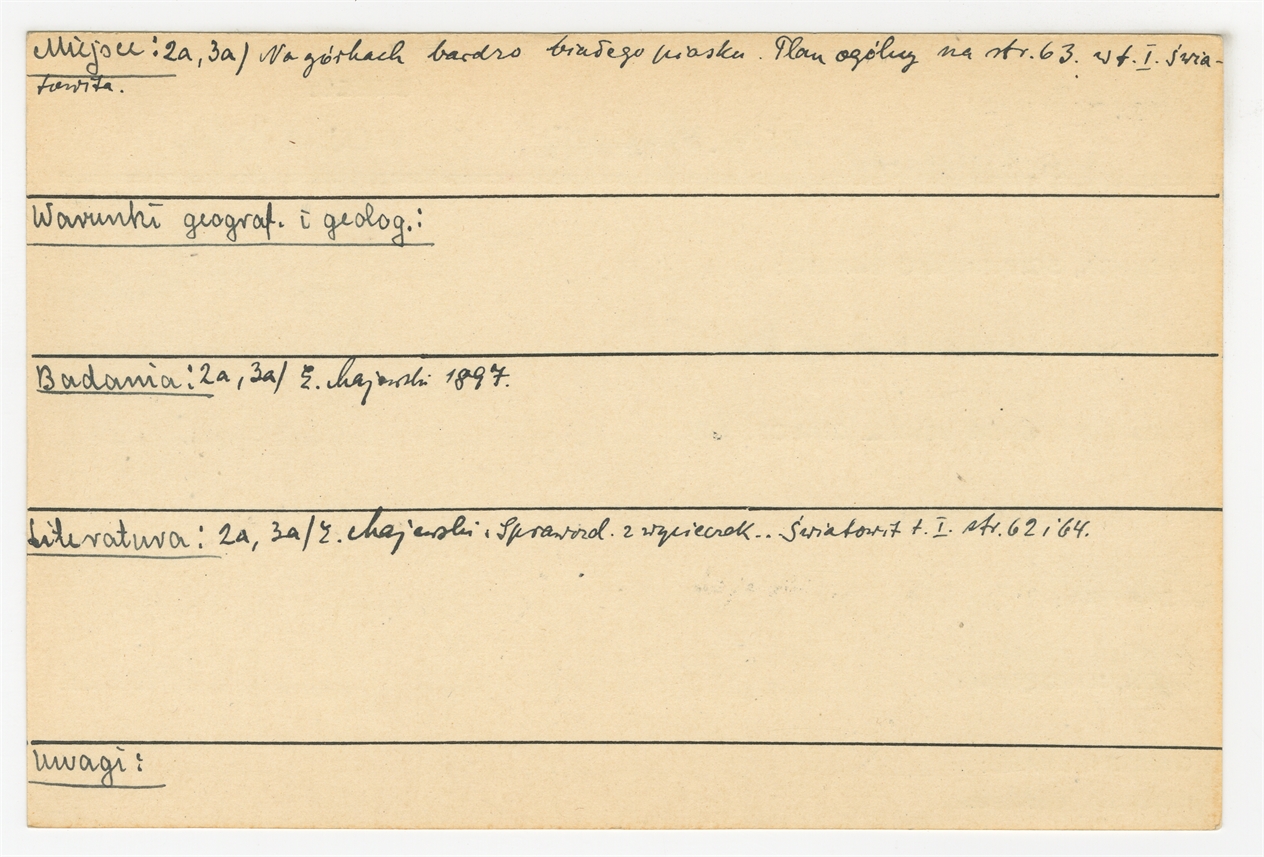 Miejsce: 2a, 3a/ Na górkach bardzo białego piasku. Plan ogólny na str. 63. w t. I. Świa-
towita.
Warunki geograf. i geolog.:
Badania: 2a, 3a/ E. Majewski 1897.
Literatura: 2a, 3a/ E. Majewski. Sprawozd. z wycieczek.. Światowit t. I. str. 62 i 64.
Uwagi: